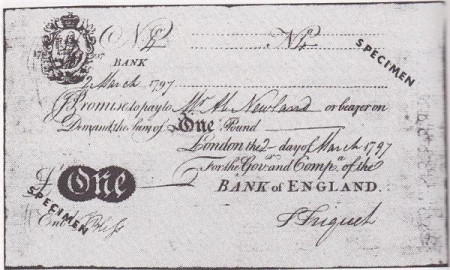 Nº 2 Nº 2
SPECIMEN
BANK
2 March 1797
I Promise to pay to Mr. Ab. Newland or bearer on
Demand the Sum of One Pound
London the 2 day of March 1797
For the Gov.r and Comp.a of the
£ One
BANK of ENGLAND.
SPECIMEN
Ent.d